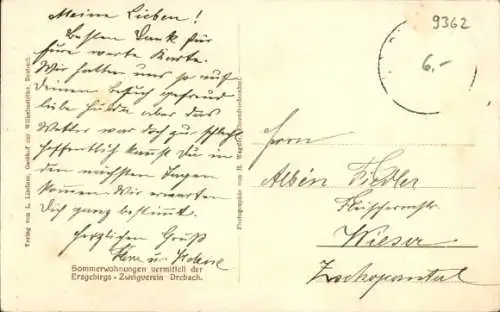 Meine Lieben!
Besten Dank für
Eure werte Karte.
Wir hatten uns so auf
Deinen Besuch gefreud
liebe Hulda aber das
Wetter war doch zu schlecht
hoffentlich kannst Du in
den nächsten Tagen
kommen Wir erwarten
Dich ganz bestimmt.
Herzlichen Gruß
Sommerwohnungen vermittelt der
Erzgebirgs-Zweigverein Drebach.
Verlag von L. Lindner, Gasthof zur Wilhelmshöhe, Drebach.
Photographie von H. Wagner,
9362
6.-
Herrn
Albin Fiedler
Fleischermstr.
Wieser
Zschopautal